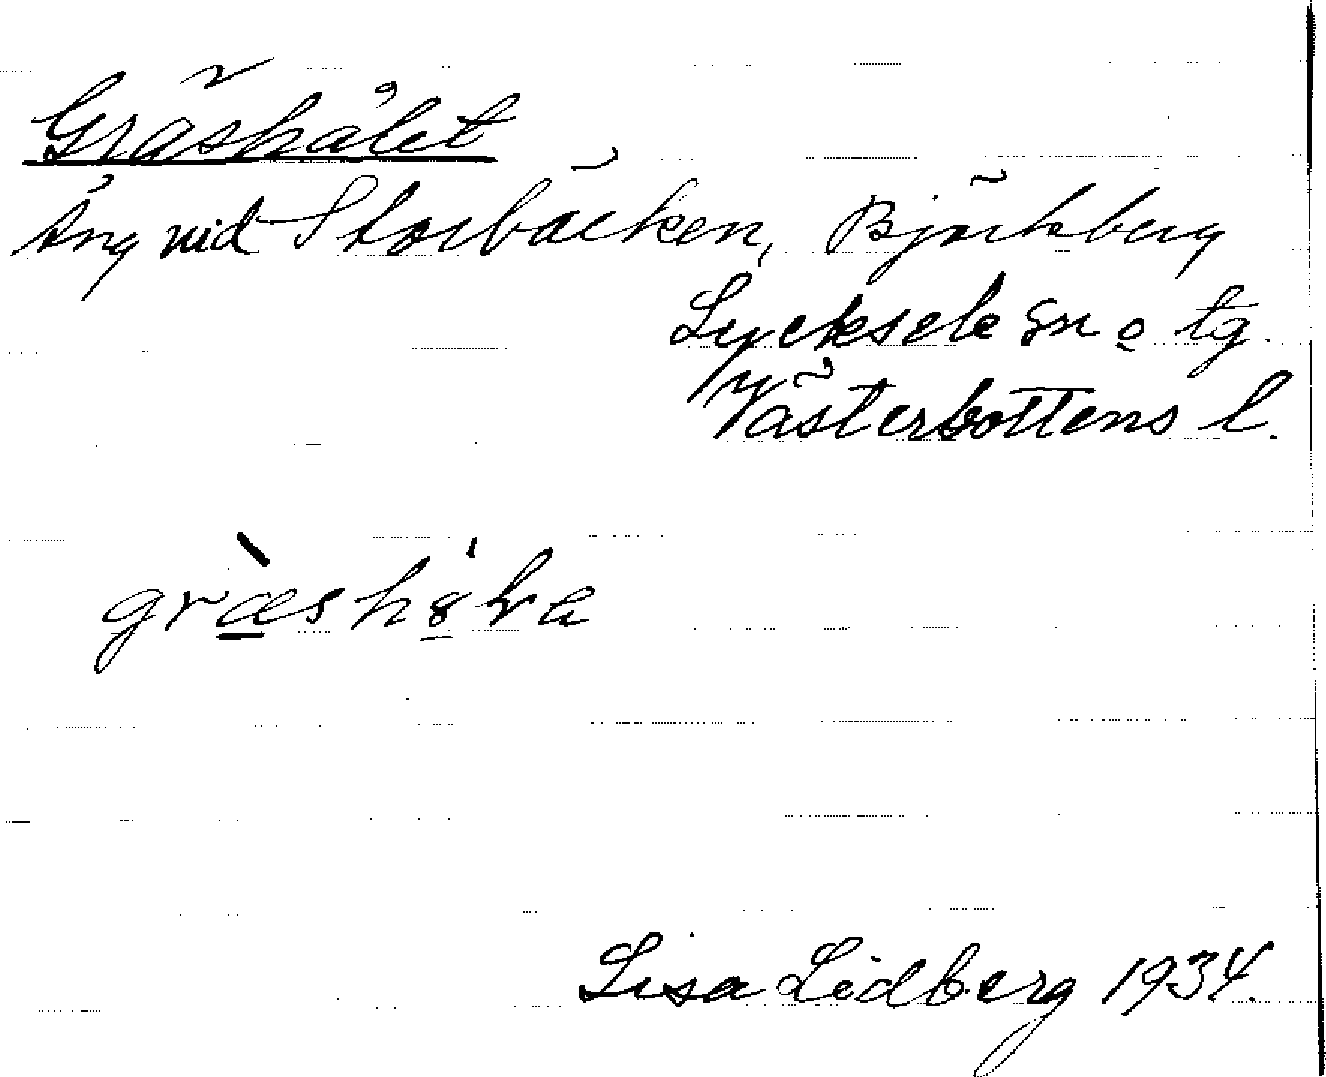 Gräshålet
Äng vid Storbäcken, Björkberg
Lycksele sn o tg.
Västerbottens l.
græshɵ̀la
Lisa Lidberg 1934.